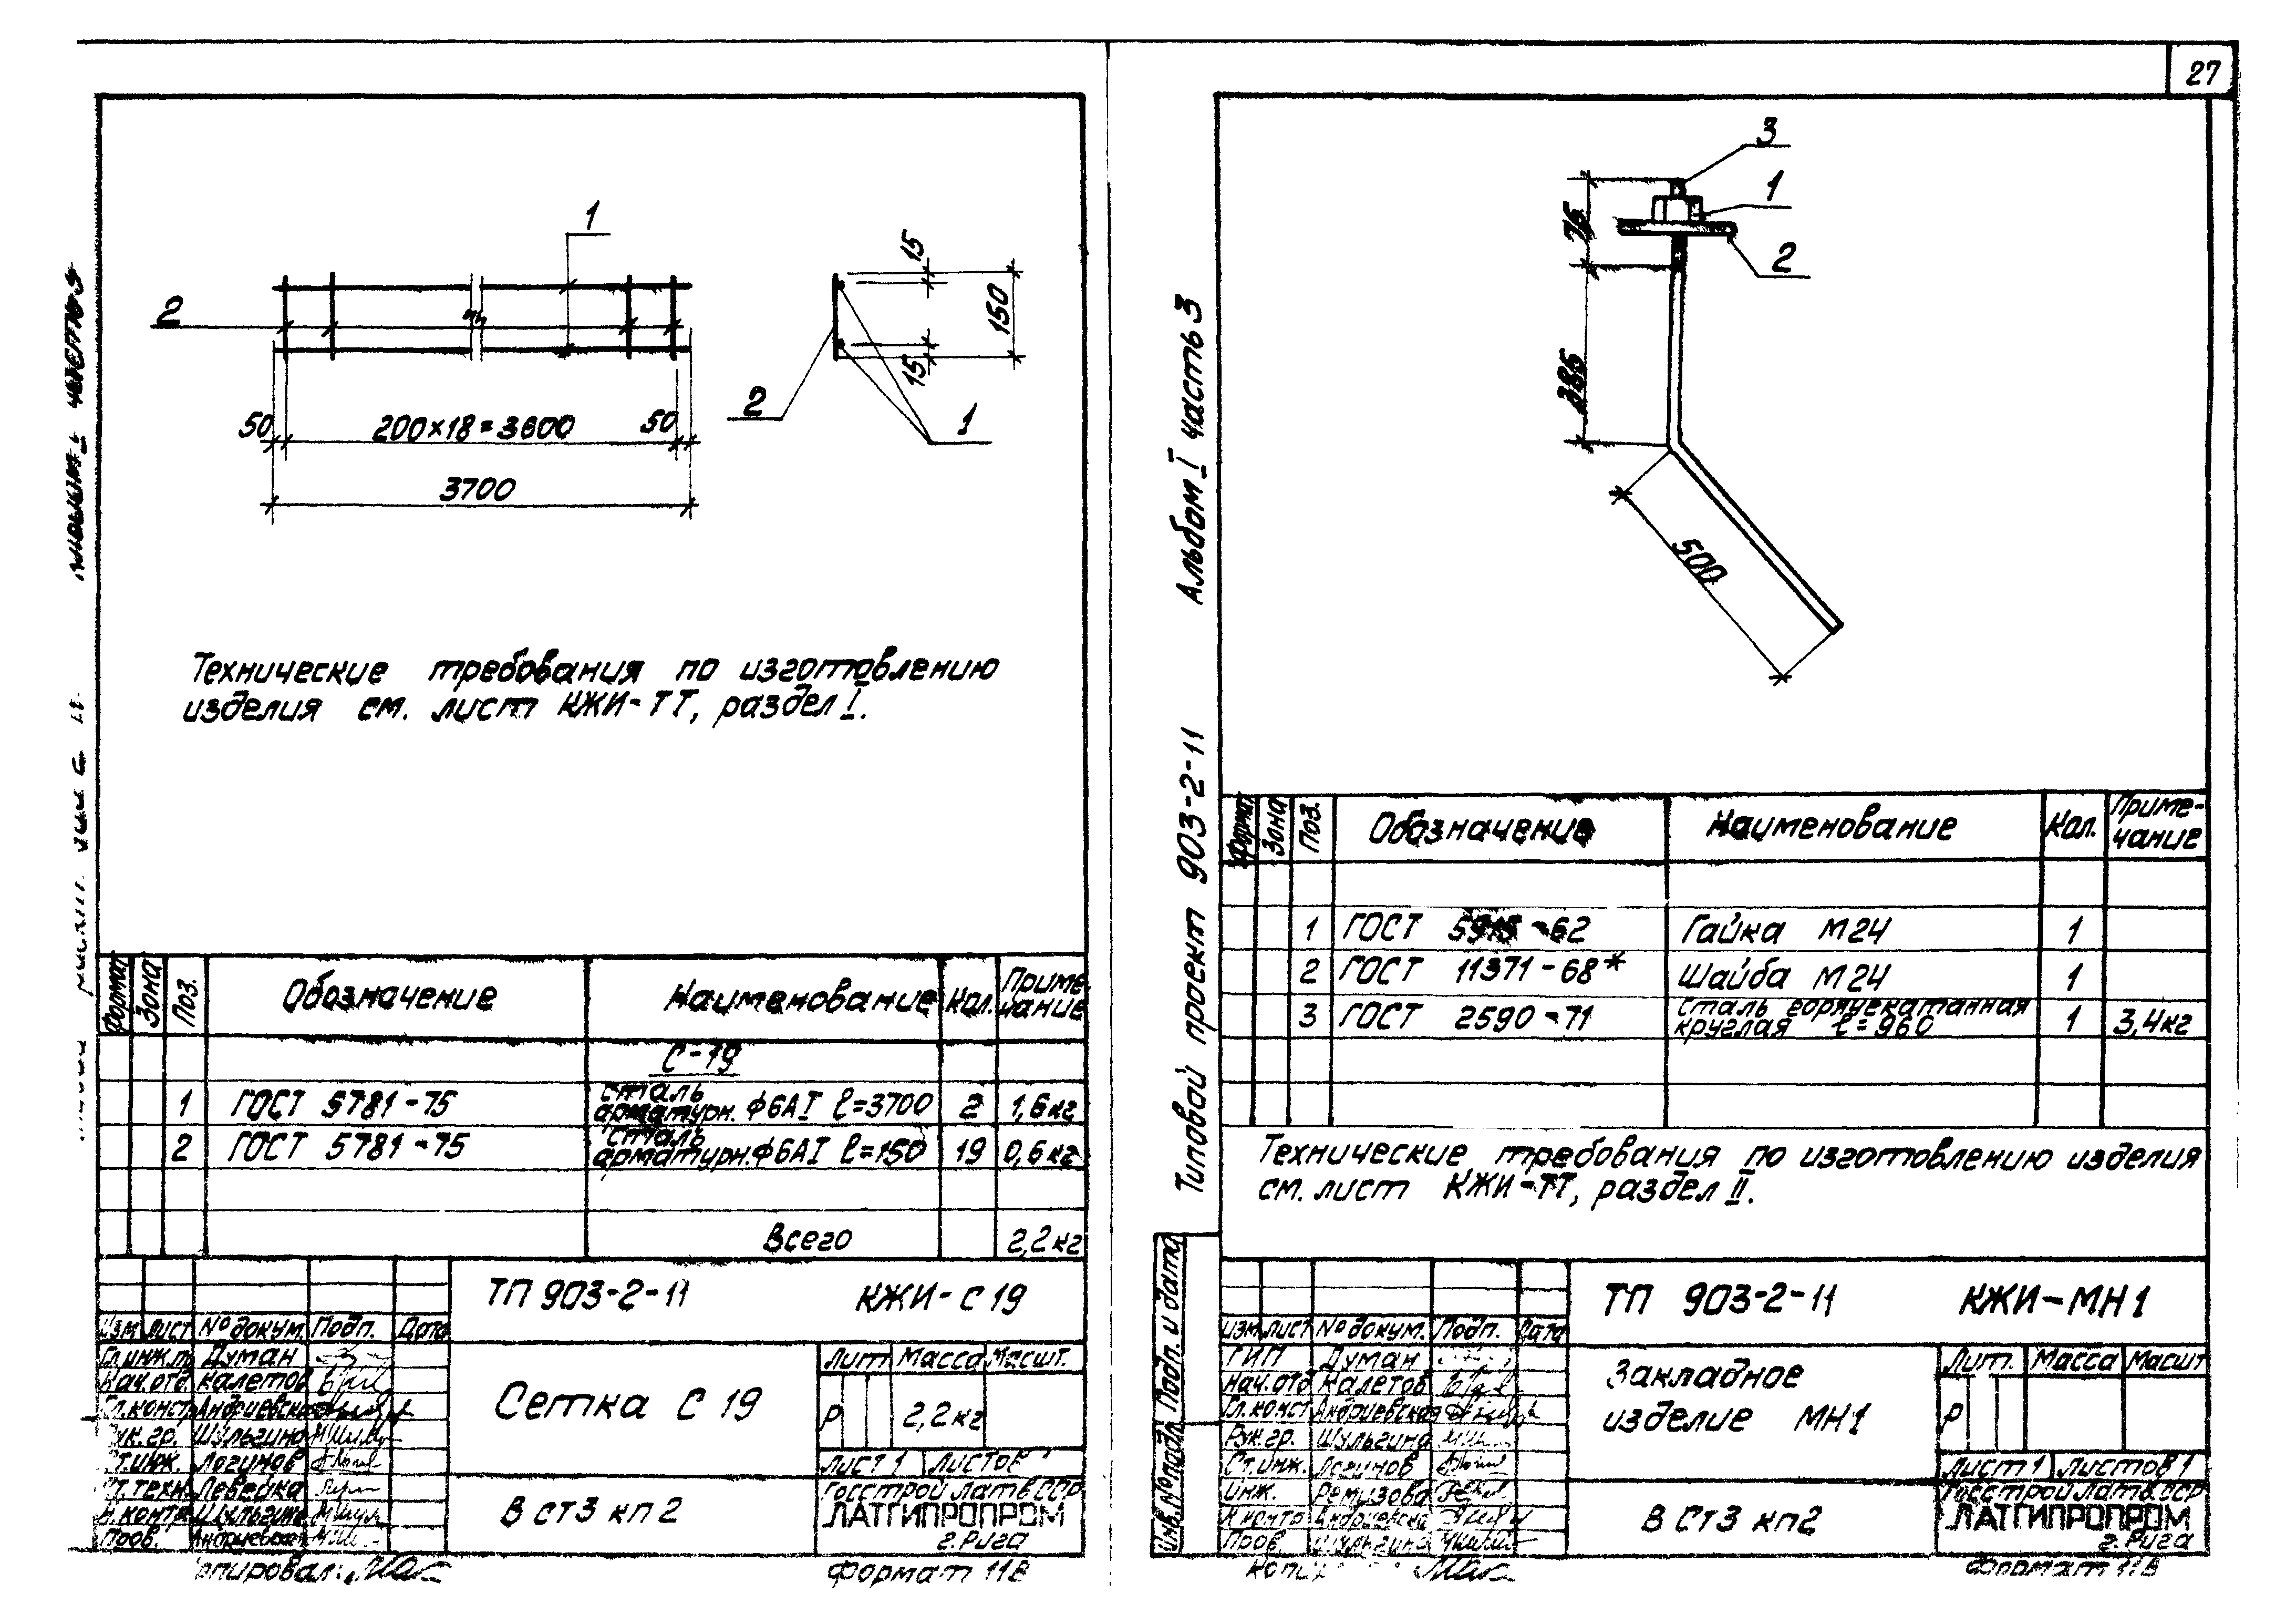 27
1
2
15
150
15
2
1
50
200×18=3600
50
3700
Технические требования по изготовлению
изделия см. лист КЖИ-ТТ, раздел I.
Формат
Зона
Поз.
Обозначение
Наименование
Кол.
Приме-
чание
С-19
1 ГОСТ 5781-75 сталь арматурн. ф6АI ℓ=3700 2 1,6кг
2 ГОСТ 5781-75 сталь арматурн. ф6АI ℓ=150 19 0,6кг
Всего 2,2кг
ТП 903-2-11 КЖИ-С19
Изм Лист № докум. Подп. Дата
Гл.инж.пр Думан
Нач.отд Калетов
Гл.конст Андриевская
Рук.гр. Шульгина
Ст.инж. Логинов
Ст.техн. Левейка
Н.контр Шульгина
Пров. Андриевская
Сетка С 19
Лит Масса Масшт.
Р 2,2кг
Лист 1 Листов
В ст3 кп2
Госстрой Латв.ССР
ЛАТГИПРОПРОМ
г.Рига
Копировал:
Формат 11В
Типовой проект 903-2-11 Альбом I часть 3
3
1
2
75
385
500
Формат
Зона
Поз.
Обозначение
Наименование
Кол.
Приме-
чание
1 ГОСТ 5915-62 Гайка М24 1
2 ГОСТ 11371-68* Шайба М24 1
3 ГОСТ 2590-71 сталь горячекатанная круглая ℓ=960 1 3,4кг
Технические требования по изготовлению изделия
см. лист КЖИ-ТТ, раздел II.
Инв.№ подл. Подп. и дата
ТП 903-2-11 КЖИ-МН1
Изм. Лист № докум. Подп. Дата
ГИП Думан
Нач.отд Калетов
Гл.конст Андриевская
Рук.гр. Шульгина
Ст.инж. Логинов
Инж. Ремизова
Н.контр Андриевская
Пров. Шульгина
Закладное
изделие МН1
Лит. Масса Масшт
Р
Лист 1 Листов 1
В Ст3 кп2
Госстрой Латв.ССР
ЛАТГИПРОПРОМ
г.Рига
Формат 11В